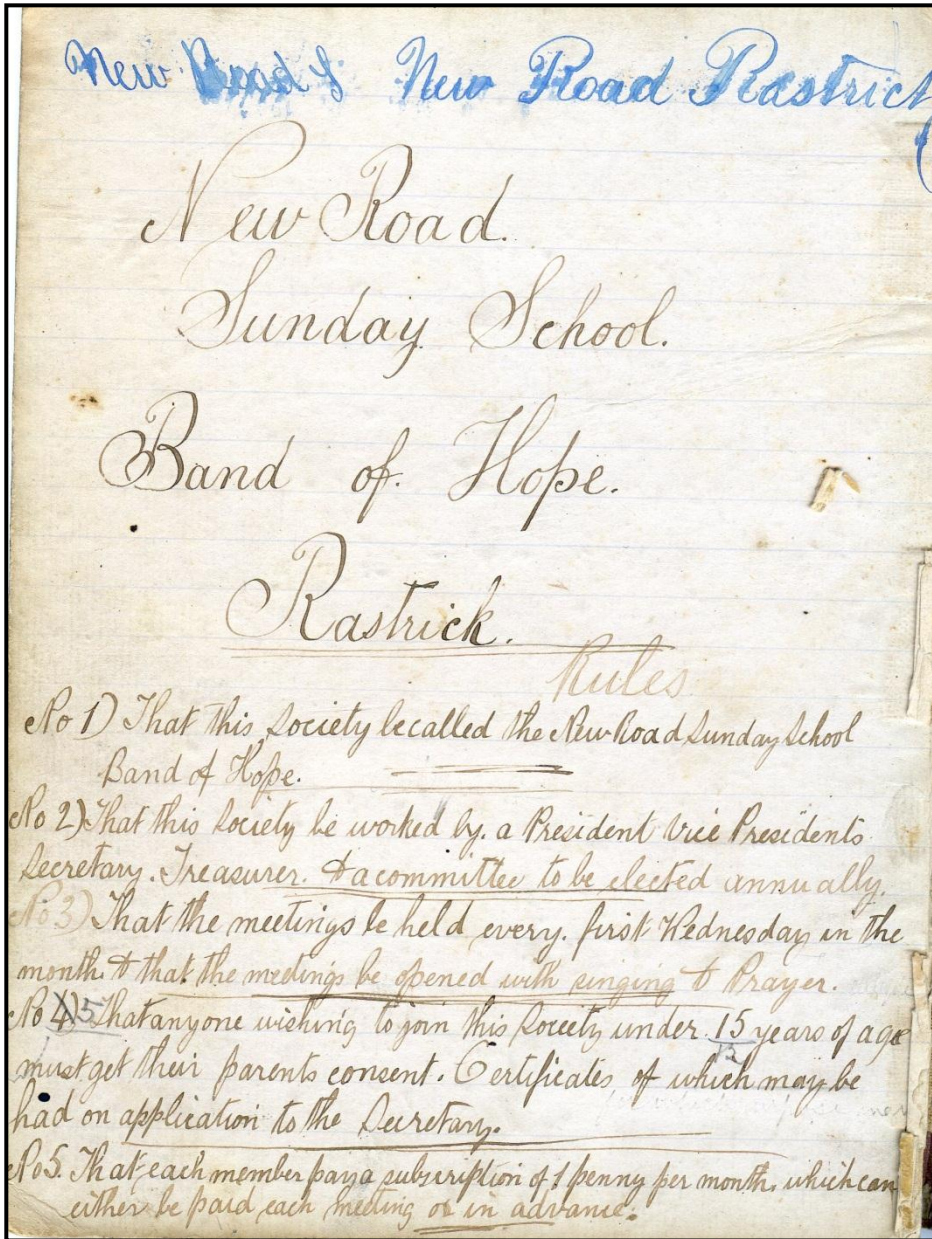 New Road S New Road Rastrick
New Road.
Sunday School.
Band of. Hope.
Rastrick.
Rules
No 1) That this Society be called the New Road Sunday School
Band of Hope.
No 2) That this Society be worked by. a President Vice Presidents
Secretary. Treasurer. & a committee to be elected annually.
No 3) That the meetings be held every. first Wednesday in the
month. & that the meetings be opened with singing & Prayer.
No 4) 5 That anyone wishing to join this Society under 15 years of age
must get their parents consent. Certificates of which may be
had on application to the Secretary.
No 5. That each member pay a subscription of 1 penny per month. which can
either be paid each meeting or in advance.